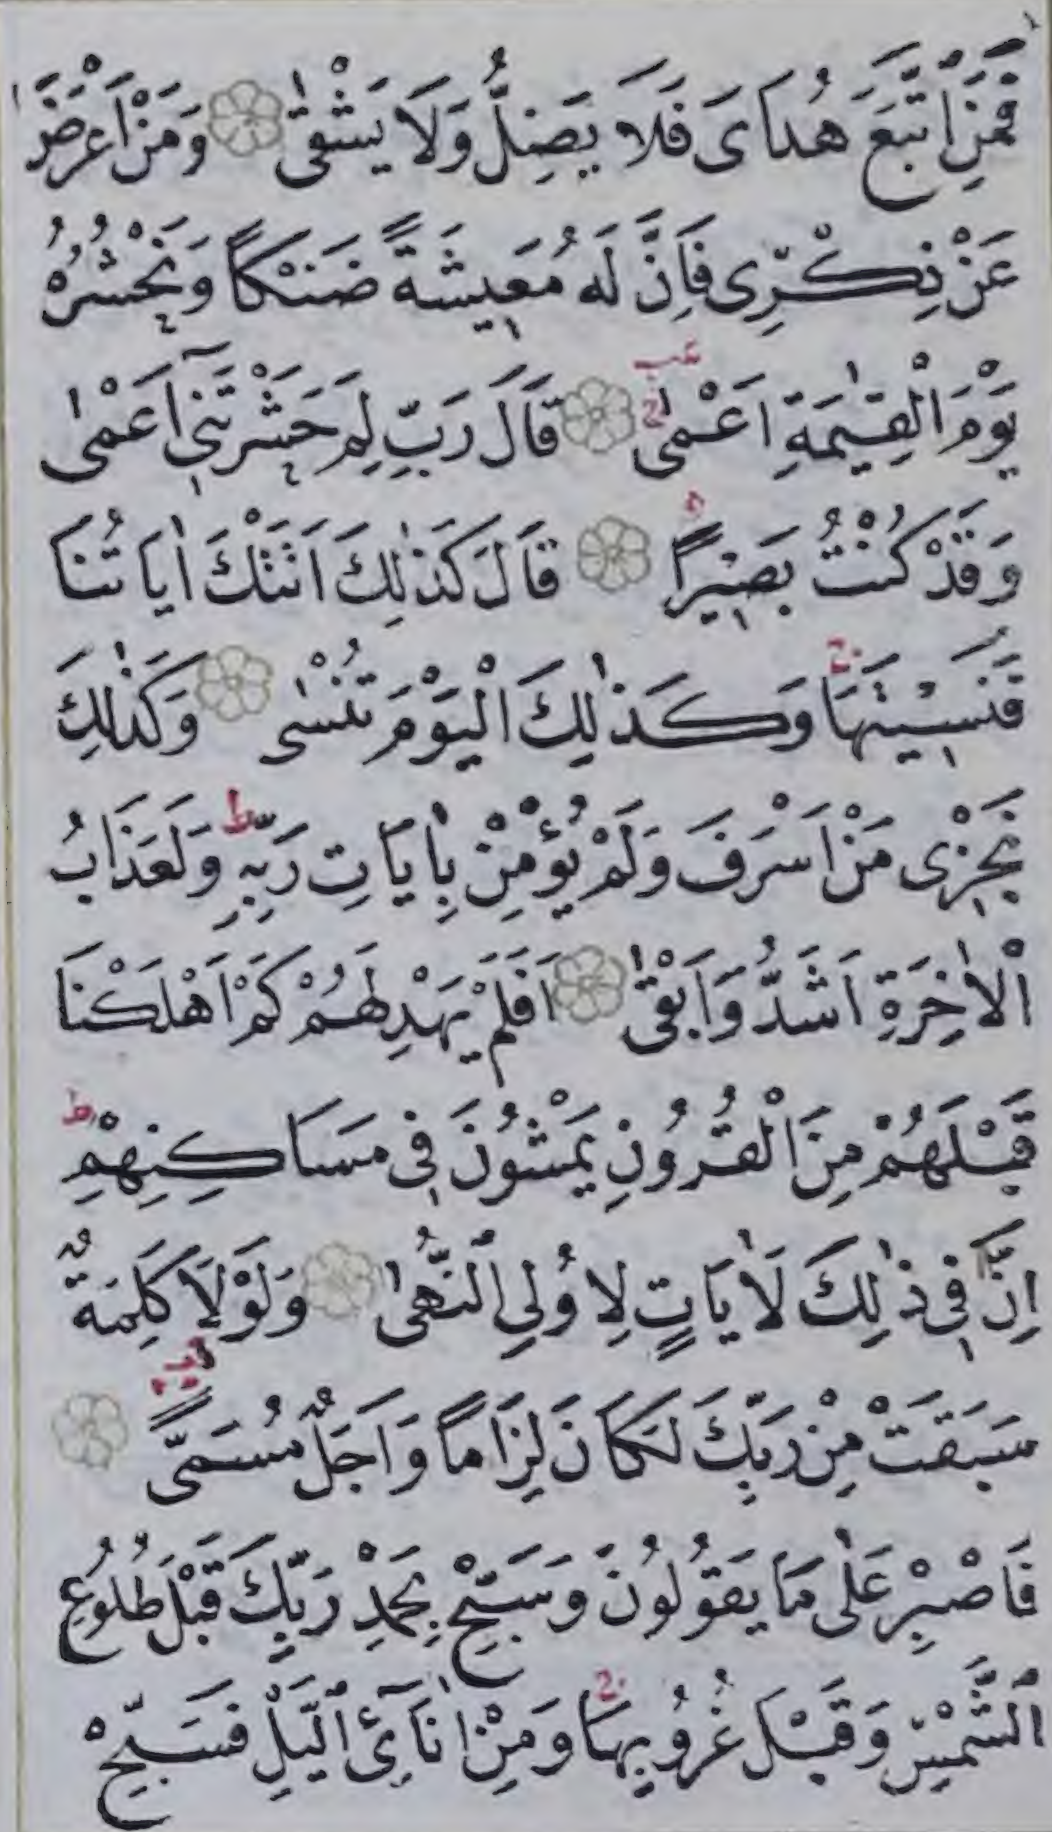 فَمَنِ اتَّبَعَ هُدَاىَ فَلَا يَضِلُّ وَلَا يَشْقٰى وَمَنْ اَعْرَضَ
عَنْ ذِكْرِى فَاِنَّ لَهُ مَعِيشَةً ضَنْكًا وَنَحْشُرُهُ
يَوْمَ الْقِيٰمَةِ اَعْمٰى قَالَ رَبِّ لِمَ حَشَرْتَنِىٓ اَعْمٰى
وَقَدْ كُنْتُ بَصِيرًا قَالَ كَذٰلِكَ اَتَتْكَ اٰيَاتُنَا
فَنَسِيتَهَا وَكَذٰلِكَ الْيَوْمَ تُنْسٰى وَكَذٰلِكَ
نَجْزِى مَنْ اَسْرَفَ وَلَمْ يُؤْمِنْ بِاٰيَاتِ رَبِّهِ ط وَلَعَذَابُ
الْاٰخِرَةِ اَشَدُّ وَاَبْقٰى اَفَلَمْ يَهْدِ لَهُمْ كَمْ اَهْلَكْنَا
قَبْلَهُمْ مِنَ الْقُرُونِ يَمْشُونَ فِى مَسَاكِنِهِمْ ط
اِنَّ فِى ذٰلِكَ لَاٰيَاتٍ لِاُولِى النُّهٰى وَلَوْلَا كَلِمَةٌ
سَبَقَتْ مِنْ رَبِّكَ لَكَانَ لِزَامًا وَاَجَلٌ مُسَمًّى
فَاصْبِرْ عَلٰى مَا يَقُولُونَ وَسَبِّحْ بِحَمْدِ رَبِّكَ قَبْلَ طُلُوعِ
الشَّمْسِ وَقَبْلَ غُرُوبِهَا وَمِنْ اٰنَآئِ الَّيْلِ فَسَبِّحْ